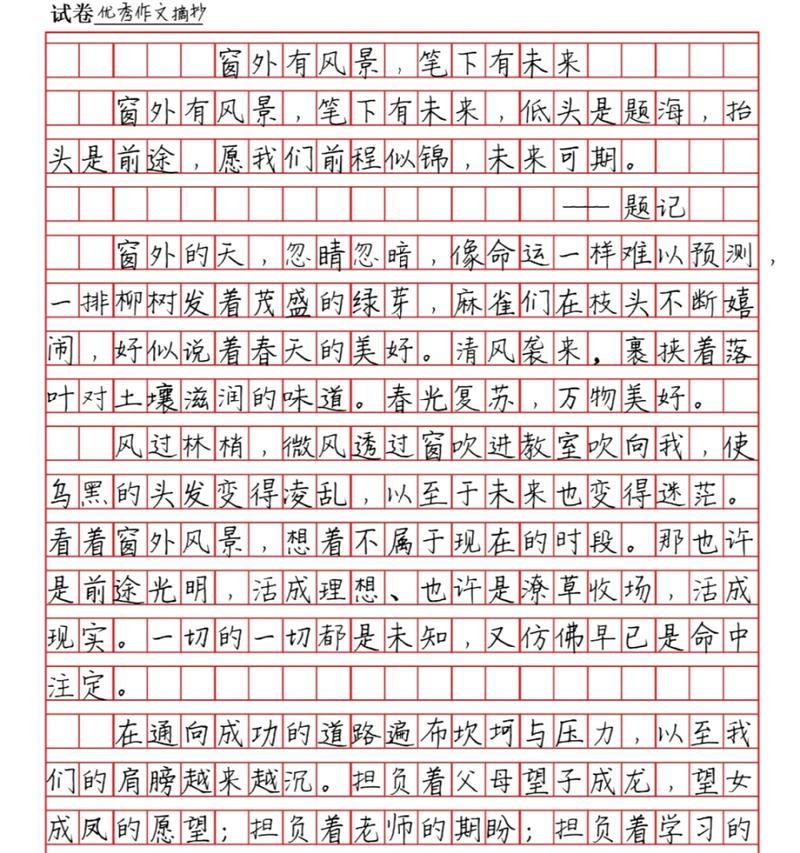 试卷优秀作文摘抄
窗外有风景，笔下有未来
窗外有风景，笔下有未来，低头是题海，抬
头是前途，愿我们前程似锦，未来可期。
——题记
窗外的天，忽晴忽暗，像命运一样难以预测，
一排柳树发着茂盛的绿芽，麻雀们在枝头不断嬉
闹，好似说着春天的美好。清风袭来，裹挟着落
叶对土壤滋润的味道。春光复苏，万物美好。
风过林梢，微风透过窗吹进教室吹向我，使
乌黑的头发变得凌乱，以至于未来也变得迷茫。
看着窗外风景，想着不属于现在的时段。那也许
是前途光明，活成理想、也许是潦草收场，活成
现实。一切的一切都是未知，又仿佛早已是命中
注定。
在通向成功的道路遍布坎坷与压力，以至我
们的肩膀越来越沉。担负着父母望子成龙，望女
成凤的愿望；担负着老师的期盼；担负着学习的